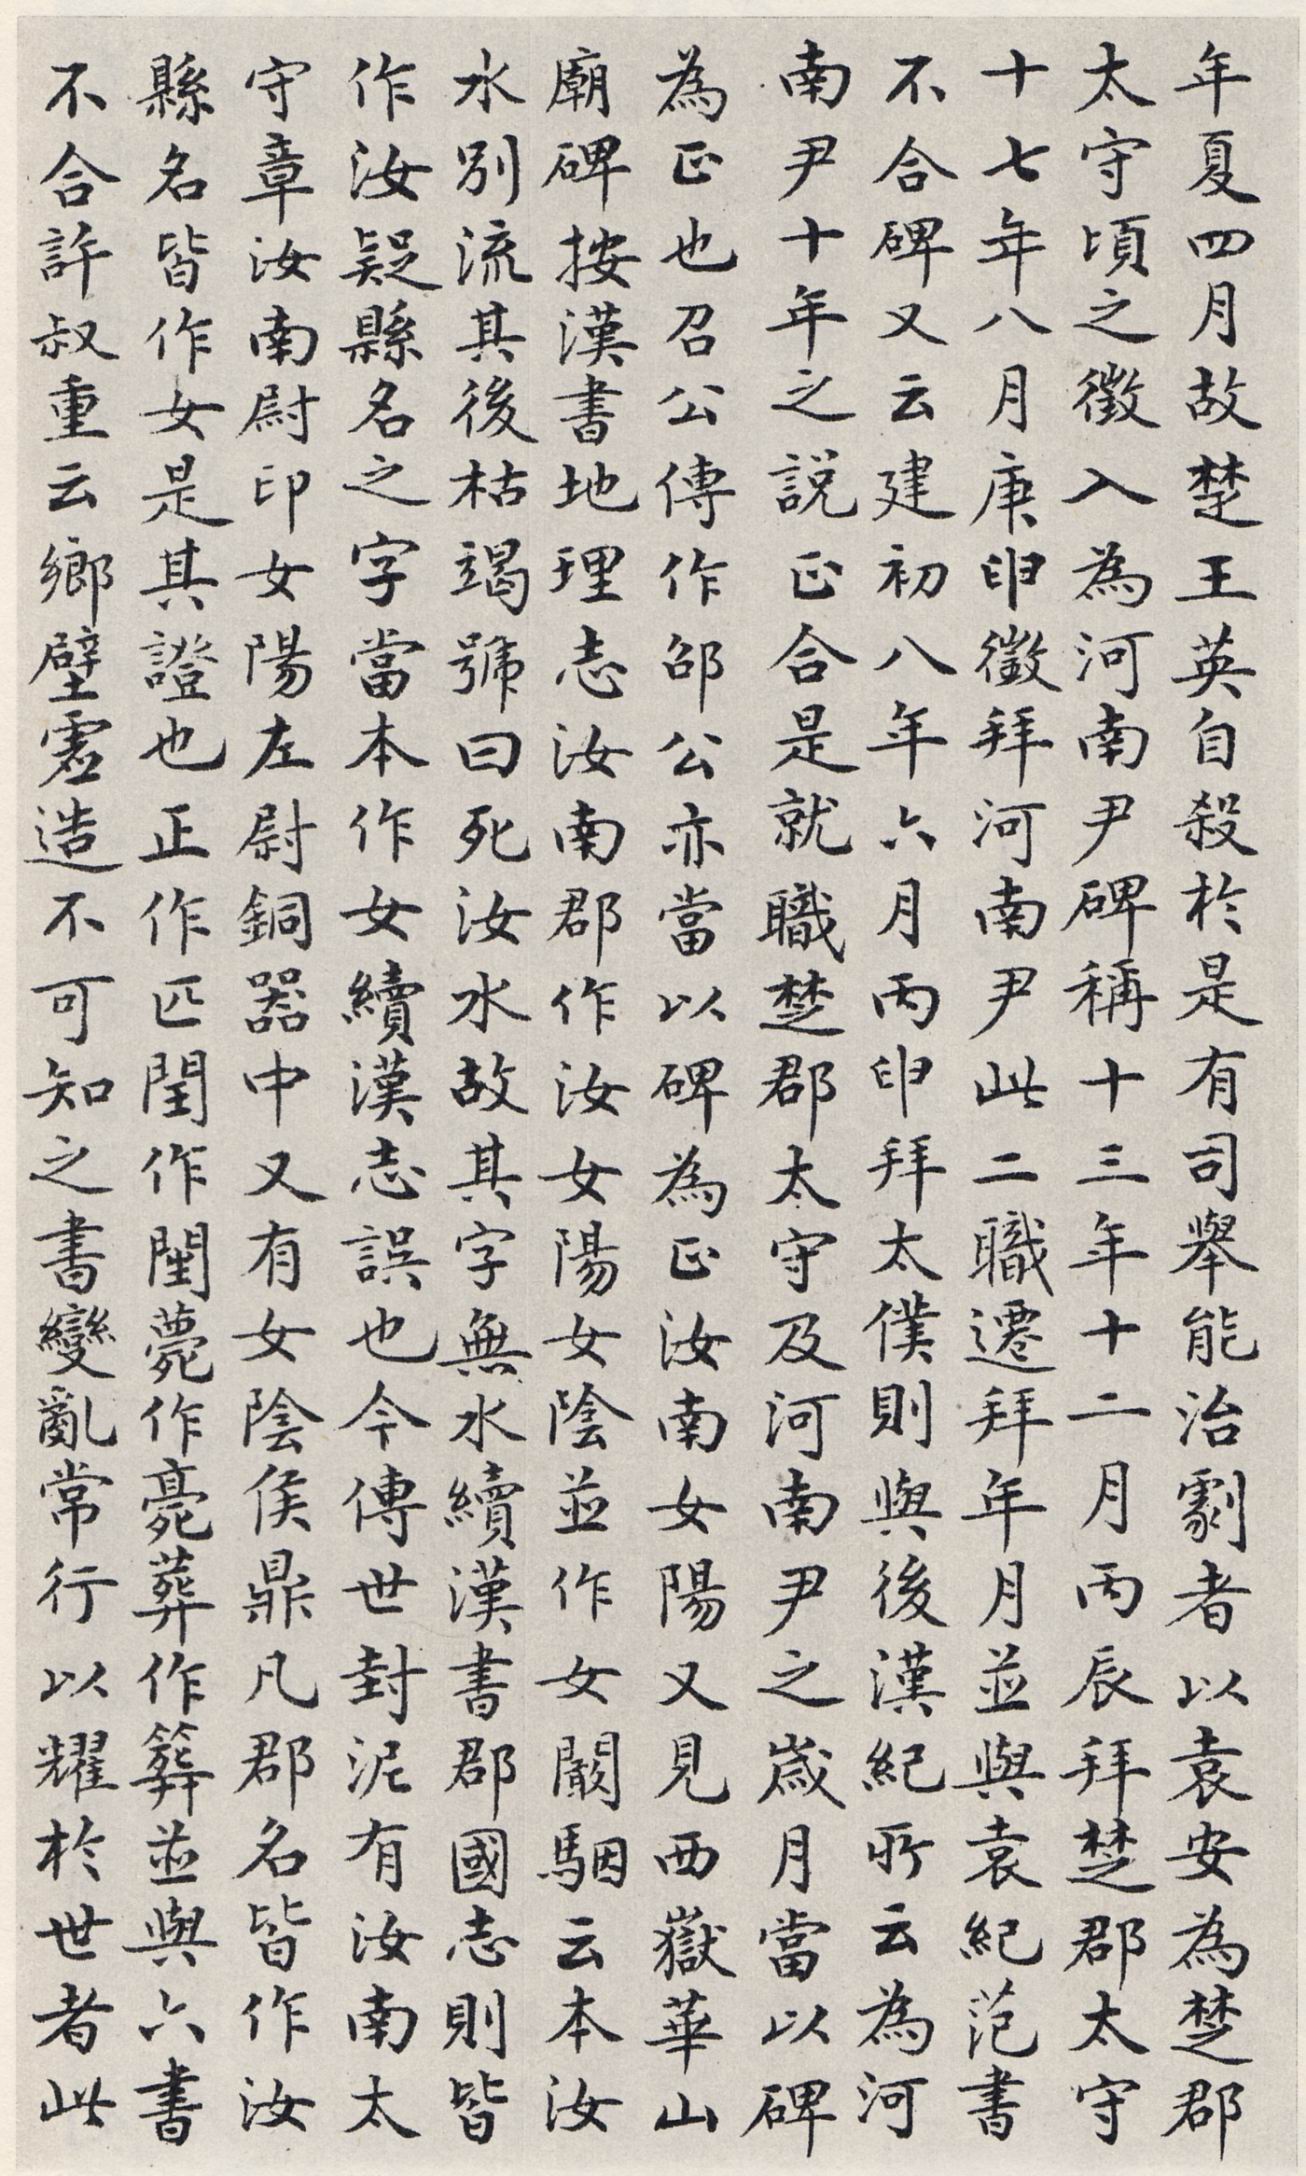 年夏四月故楚王英自殺於是有司舉能治劇者以袁安為楚郡
太守頃之徵入為河南尹碑稱十三年十二月丙辰拜楚郡太守
十七年八月庚申徵拜河南尹此二職遷拜年月並與袁紀范書
不合碑又云建初八年六月丙申拜太僕則與後漢紀所云為河
南尹十年之說正合是就職楚郡太守及河南尹之歲月當以碑
為正也召公傳作邵公亦當以碑為正汝南女陽又見西嶽華山
廟碑按漢書地理志汝南郡作汝女陽女陰並作女闞駰云本汝
水別流其後枯竭號曰死汝水故其字無水續漢書郡國志則皆
作汝疑縣名之字當本作女續漢志誤也今傳世封泥有汝南太
守章汝南尉印女陽左尉銅器中又有女陰侯鼎凡郡名皆作汝
縣名皆作女是其證也正作𠃵閏作閠薨作薧葬作䔬並與六書
不合許叔重云鄉壁虛造不可知之書變亂常行以耀於世者此